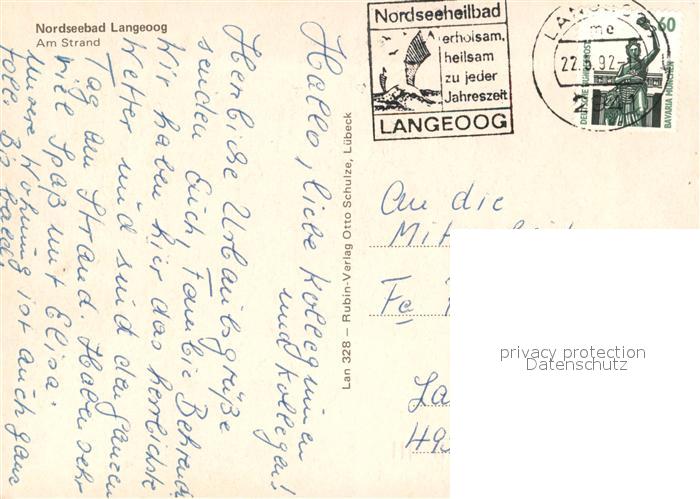 Nordseebad Langeoog
Am Strand
Hallo, liebe Kolleginnen
und Kollegen!
Herzliche Urlaubsgrüße
senden Euch, Familie
Wir haben hier das herrlichste
Wetter und sind den ganzen
Tag am Strand. Haben sehr
viel Spaß mit Elisa.
Unsere Wohnung ist auch ganz
toll. Bis bald!
Lan 328 – Rubin-Verlag Otto Schulze, Lübeck
Nordseeheilbad
erholsam,
heilsam
zu jeder
Jahreszeit
LANGEOOG
22.
92-
60
DEUTSCHE BUNDESPOST
BAVARIA MÜNCHEN
An die
Fa
privacy protection
Datenschutz